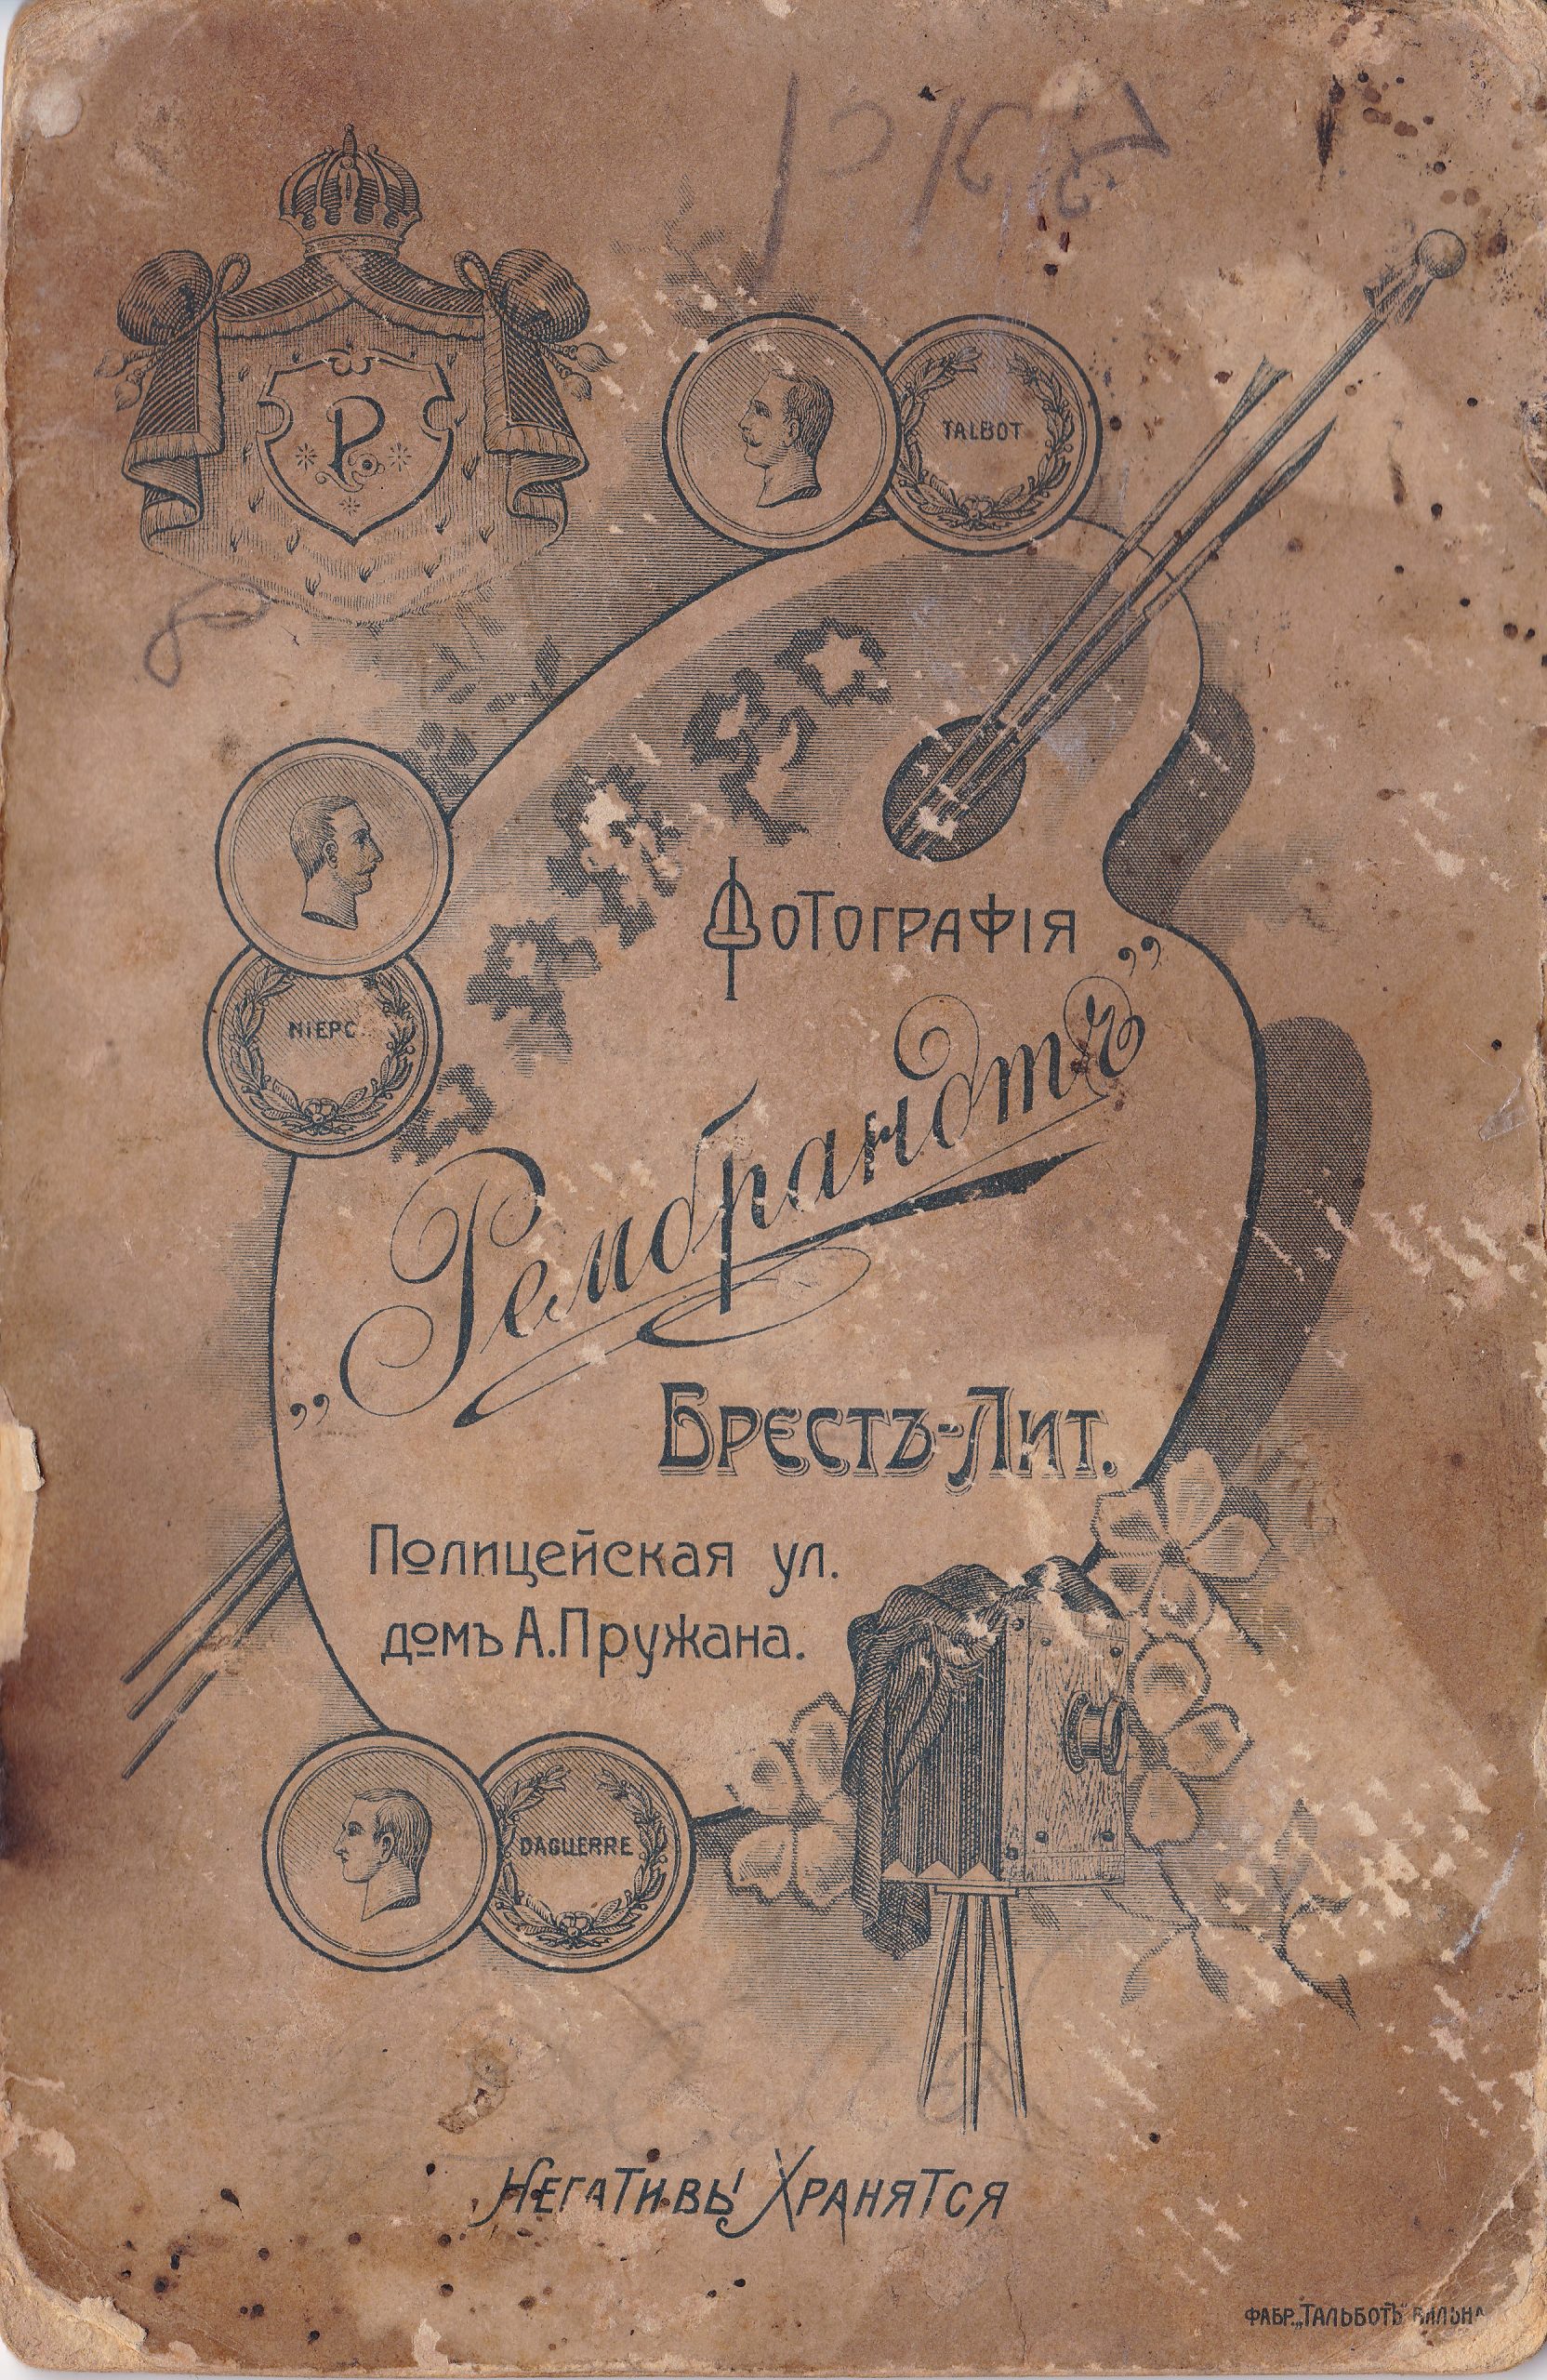 P
TALBOT
ФОТОГРАФІЯ
NIEPC
„Рембрандтъ”
БРЕСТЪ-ЛИТ.
Полицейская ул.
домъ А.Пружана.
DAGUERRE
НЕГАТИВЫ ХРАНЯТСЯ
ФАБР. „ТАЛЬБОТЪ” ВИЛЬНА